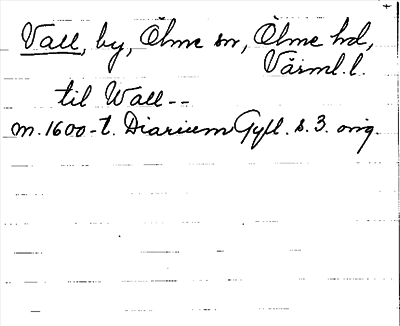 Vall, by, Ölme sn, Ölme hd,
Värml. l.
til Wall--
m. 1600-t. Diarium Gyll. s. 3. orig.